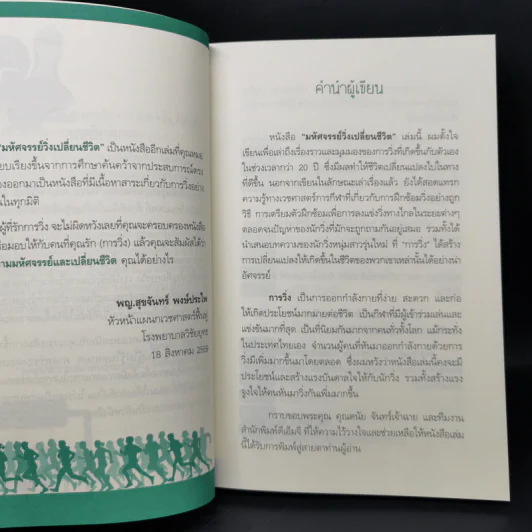 "มหัศจรรย์วิ่งเปลี่ยนชีวิต" เป็นหนังสืออีกเล่มที่คุณหมอ
เรียบเรียงขึ้นจากการศึกษาค้นคว้าจากประสบการณ์ตรง
ออกมาเป็นหนังสือที่มีเนื้อหาสาระเกี่ยวกับการวิ่งอย่าง
ในทุกมิติ
ผู้ที่รักการวิ่ง จะไม่ผิดหวังเลยที่คุณจะครอบครองหนังสือ
มอบให้กับคนที่คุณรัก (การวิ่ง) แล้วคุณจะสัมผัสได้ว่า
ความมหัศจรรย์และเปลี่ยนชีวิต คุณได้อย่างไร
พญ.สุขจันทร์ พงษ์ประไพ
หัวหน้าแผนกเวชศาสตร์ฟื้นฟู
โรงพยาบาลวิชัยยุทธ
18 สิงหาคม
คำนำผู้เขียน
หนังสือ "มหัศจรรย์วิ่งเปลี่ยนชีวิต" เล่มนี้ ผมตั้งใจ
เขียนเพื่อเล่าถึงเรื่องราวและมุมมองของการวิ่งที่เกิดขึ้นกับตัวเอง
ในช่วงเวลากว่า 20 ปี ซึ่งมีผลทำให้ชีวิตเปลี่ยนแปลงไปในทาง
ที่ดีขึ้น นอกจากเขียนในลักษณะเล่าเรื่องแล้ว ยังได้สอดแทรก
ความรู้ทางเวชศาสตร์การกีฬาที่เกี่ยวกับการฝึกซ้อมวิ่งอย่างถูก
วิธี การเตรียมตัวฝึกซ้อมเพื่อการลงแข่งวิ่งทางไกลในระยะต่างๆ
ตลอดจนปัญหาของนักวิ่งที่มักจะถูกถามกันอยู่เสมอ รวมทั้งได้
นำเสนอบทความของนักวิ่งหนุ่มสาวรุ่นใหม่ ที่ "การวิ่ง" ได้สร้าง
การเปลี่ยนแปลงให้เกิดขึ้นในชีวิตของพวกเขาเหล่านั้นได้อย่างน่า
อัศจรรย์
การวิ่ง เป็นการออกกำลังกายที่ง่าย สะดวก และก่อ
ให้เกิดประโยชน์มากมายต่อชีวิต เป็นกีฬาที่มีผู้เข้าร่วมเล่นและ
แข่งขันมากที่สุด เป็นที่นิยมกันมากจากคนทั่วทั้งโลก แม้กระทั่ง
ในประเทศไทยเอง จำนวนผู้คนที่หันมาออกกำลังกายด้วยการ
วิ่งมีเพิ่มมากขึ้นมาโดยตลอด ซึ่งผมหวังว่าหนังสือเล่มนี้คงจะมี
ประโยชน์และสร้างแรงบันดาลใจให้กับนักวิ่ง รวมทั้งสร้างแรง
จูงใจให้คนหันมาวิ่งกันเพิ่มมากขึ้น
กราบขอบพระคุณ คุณดนัย จันทร์เจ้าฉาย และทีมงาน
สำนักพิมพ์ดีเอ็มจี ที่ให้ความไว้วางใจและช่วยเหลือให้หนังสือเล่ม
นี้ได้รับการพิมพ์สู่สายตาท่านผู้อ่าน